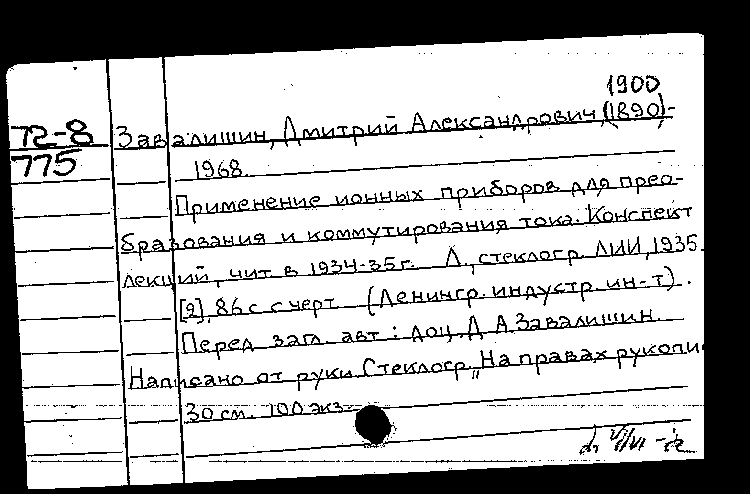 1900
72-8 Завалишин, Дмитрий Александрович, (1890)-
775 1968.
Применение ионных приборов для прео-
бразования и коммутирования тока. Конспект
лекций, чит в 1934-35 г. Л., стеклогр. ЛИИ, 1935.
[2], 86 с с черт (Ленингр. индустр. ин-т).
Перед загл. авт: доц. Д. А. Завалишин.
Написано от руки. Стеклогр. "На правах рукопи
30 см. 100 экз.